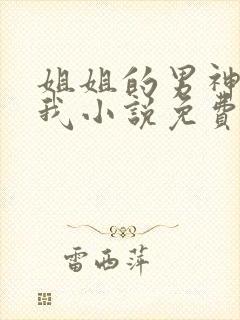 姐姐的男神
我小说免费
雷西萍